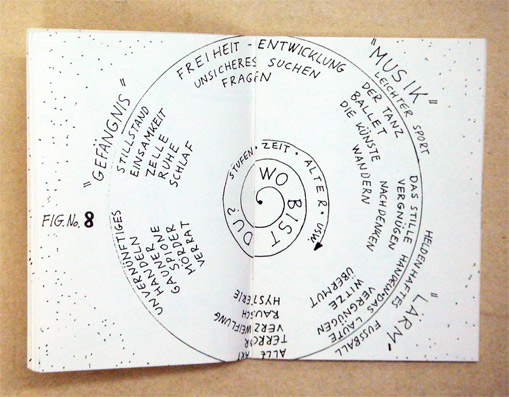 FREIHEIT - ENTWICKLUNG
UNSICHERES SUCHEN
FRAGEN
"MUSIK"
LEICHTER SPORT
DER TANZ
BALLET
DIE KÜNSTE
WANDERN
NACHDENKEN
DAS STILLE
VERGNÜGEN
HELDENHAFTES
HANDELN
"LÄRM"
DAS LAUTE
VERGNÜGEN
FUSSBALL
WITZE
ÜBERMUT
HYSTERIE
RAUSCH
VERZWEIFLUNG
TERROR
ALLE
UNVERNÜNFTIGES
HANDELN
GAUNER
SPIONE
MÖRDER
VERRAT
"GEFÄNGNIS"
STILLSTAND
EINSAMKEIT
ZELLE
RUHE
SCHLAF
STUFEN · ZEIT · ALTER · USW.
WO BIST DU?
FIG. No. 8